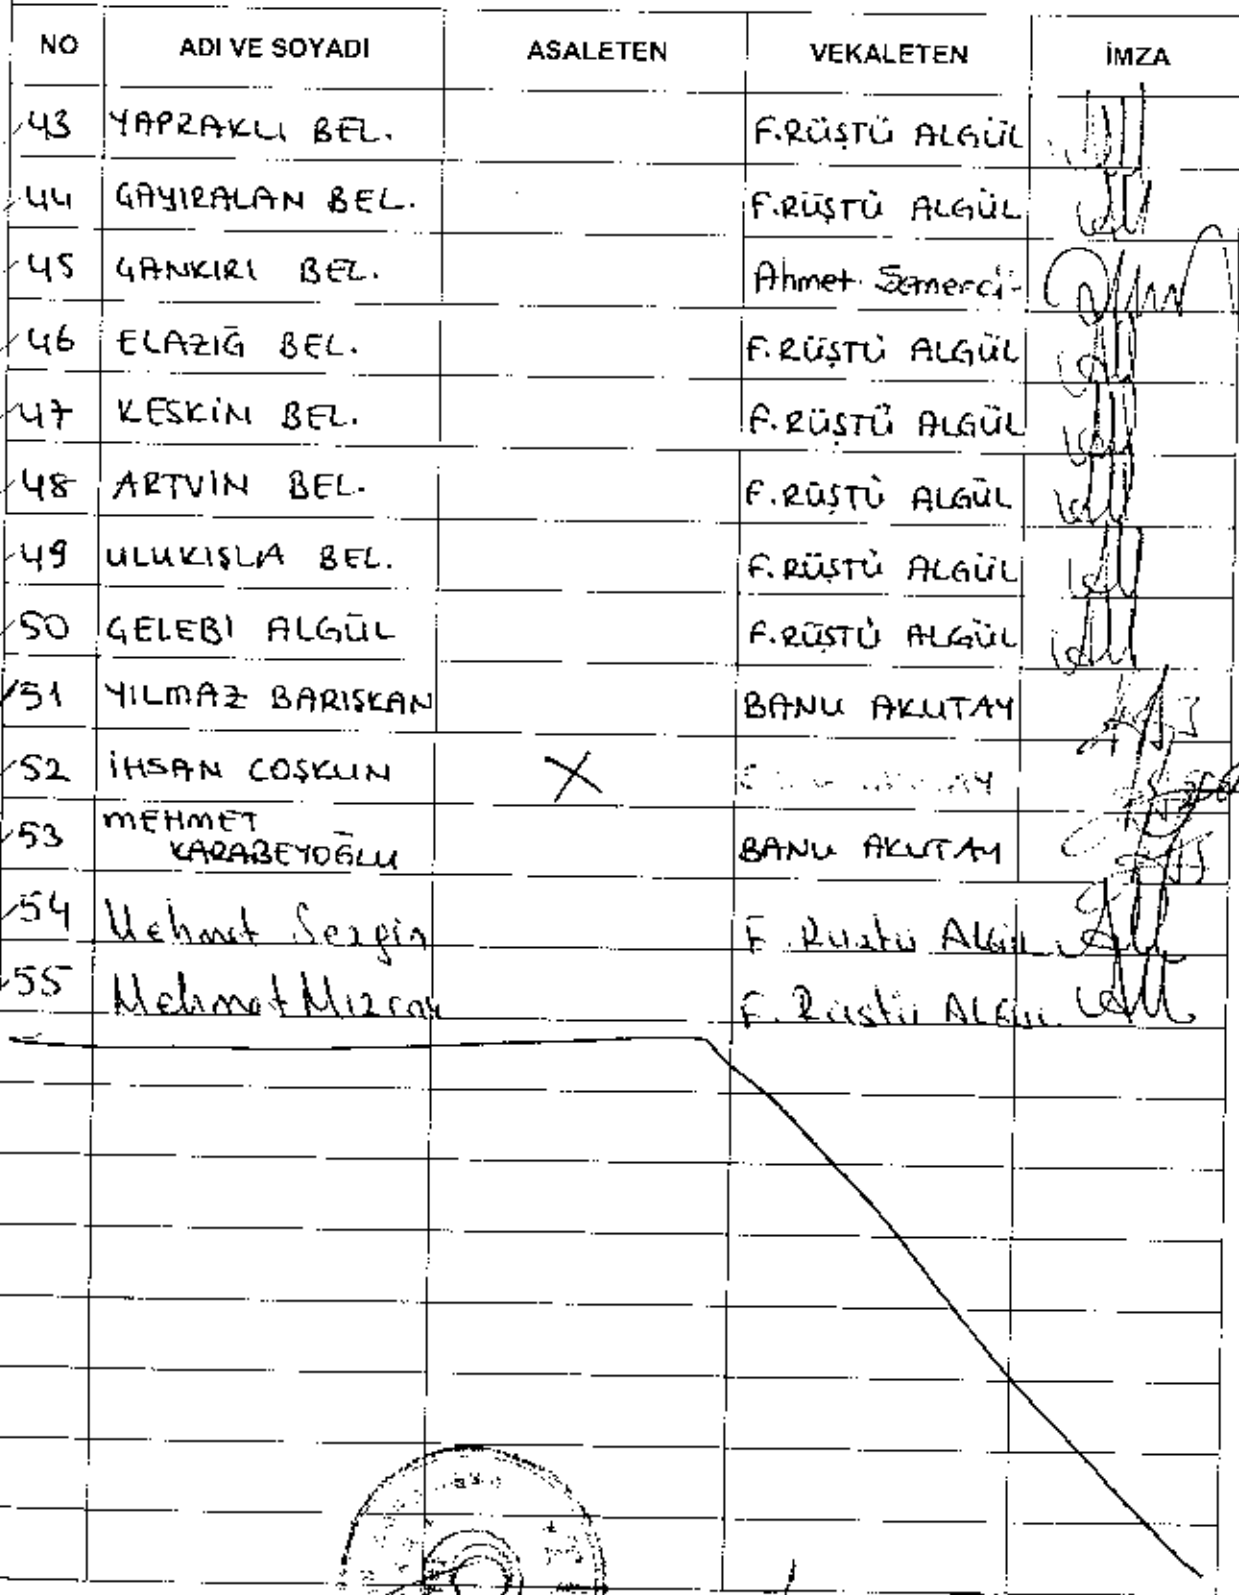 NO ADI VE SOYADI ASALETEN VEKALETEN İMZA
43 YAPRAKLI BEL. F.RÜŞTÜ ALGÜL
44 ÇAYIRALAN BEL. F.RÜŞTÜ ALGÜL
45 ÇANKIRI BEL. Ahmet Semerci
46 ELAZIĞ BEL. F.RÜŞTÜ ALGÜL
47 KESKİN BEL. F.RÜŞTÜ ALGÜL
48 ARTVİN BEL. F.RÜŞTÜ ALGÜL
49 ULUKIŞLA BEL. F.RÜŞTÜ ALGÜL
50 ÇELEBİ ALGÜL F.RÜŞTÜ ALGÜL
51 YILMAZ BARIŞKAN BANU AKUTAY
52 İHSAN COŞKUN X
53 MEHMET
KARABEYOĞLU BANU AKUTAY
54 Mehmet Sezgin F. Rüştü ALGÜL
55 Mehmet F. Rüştü ALGÜL